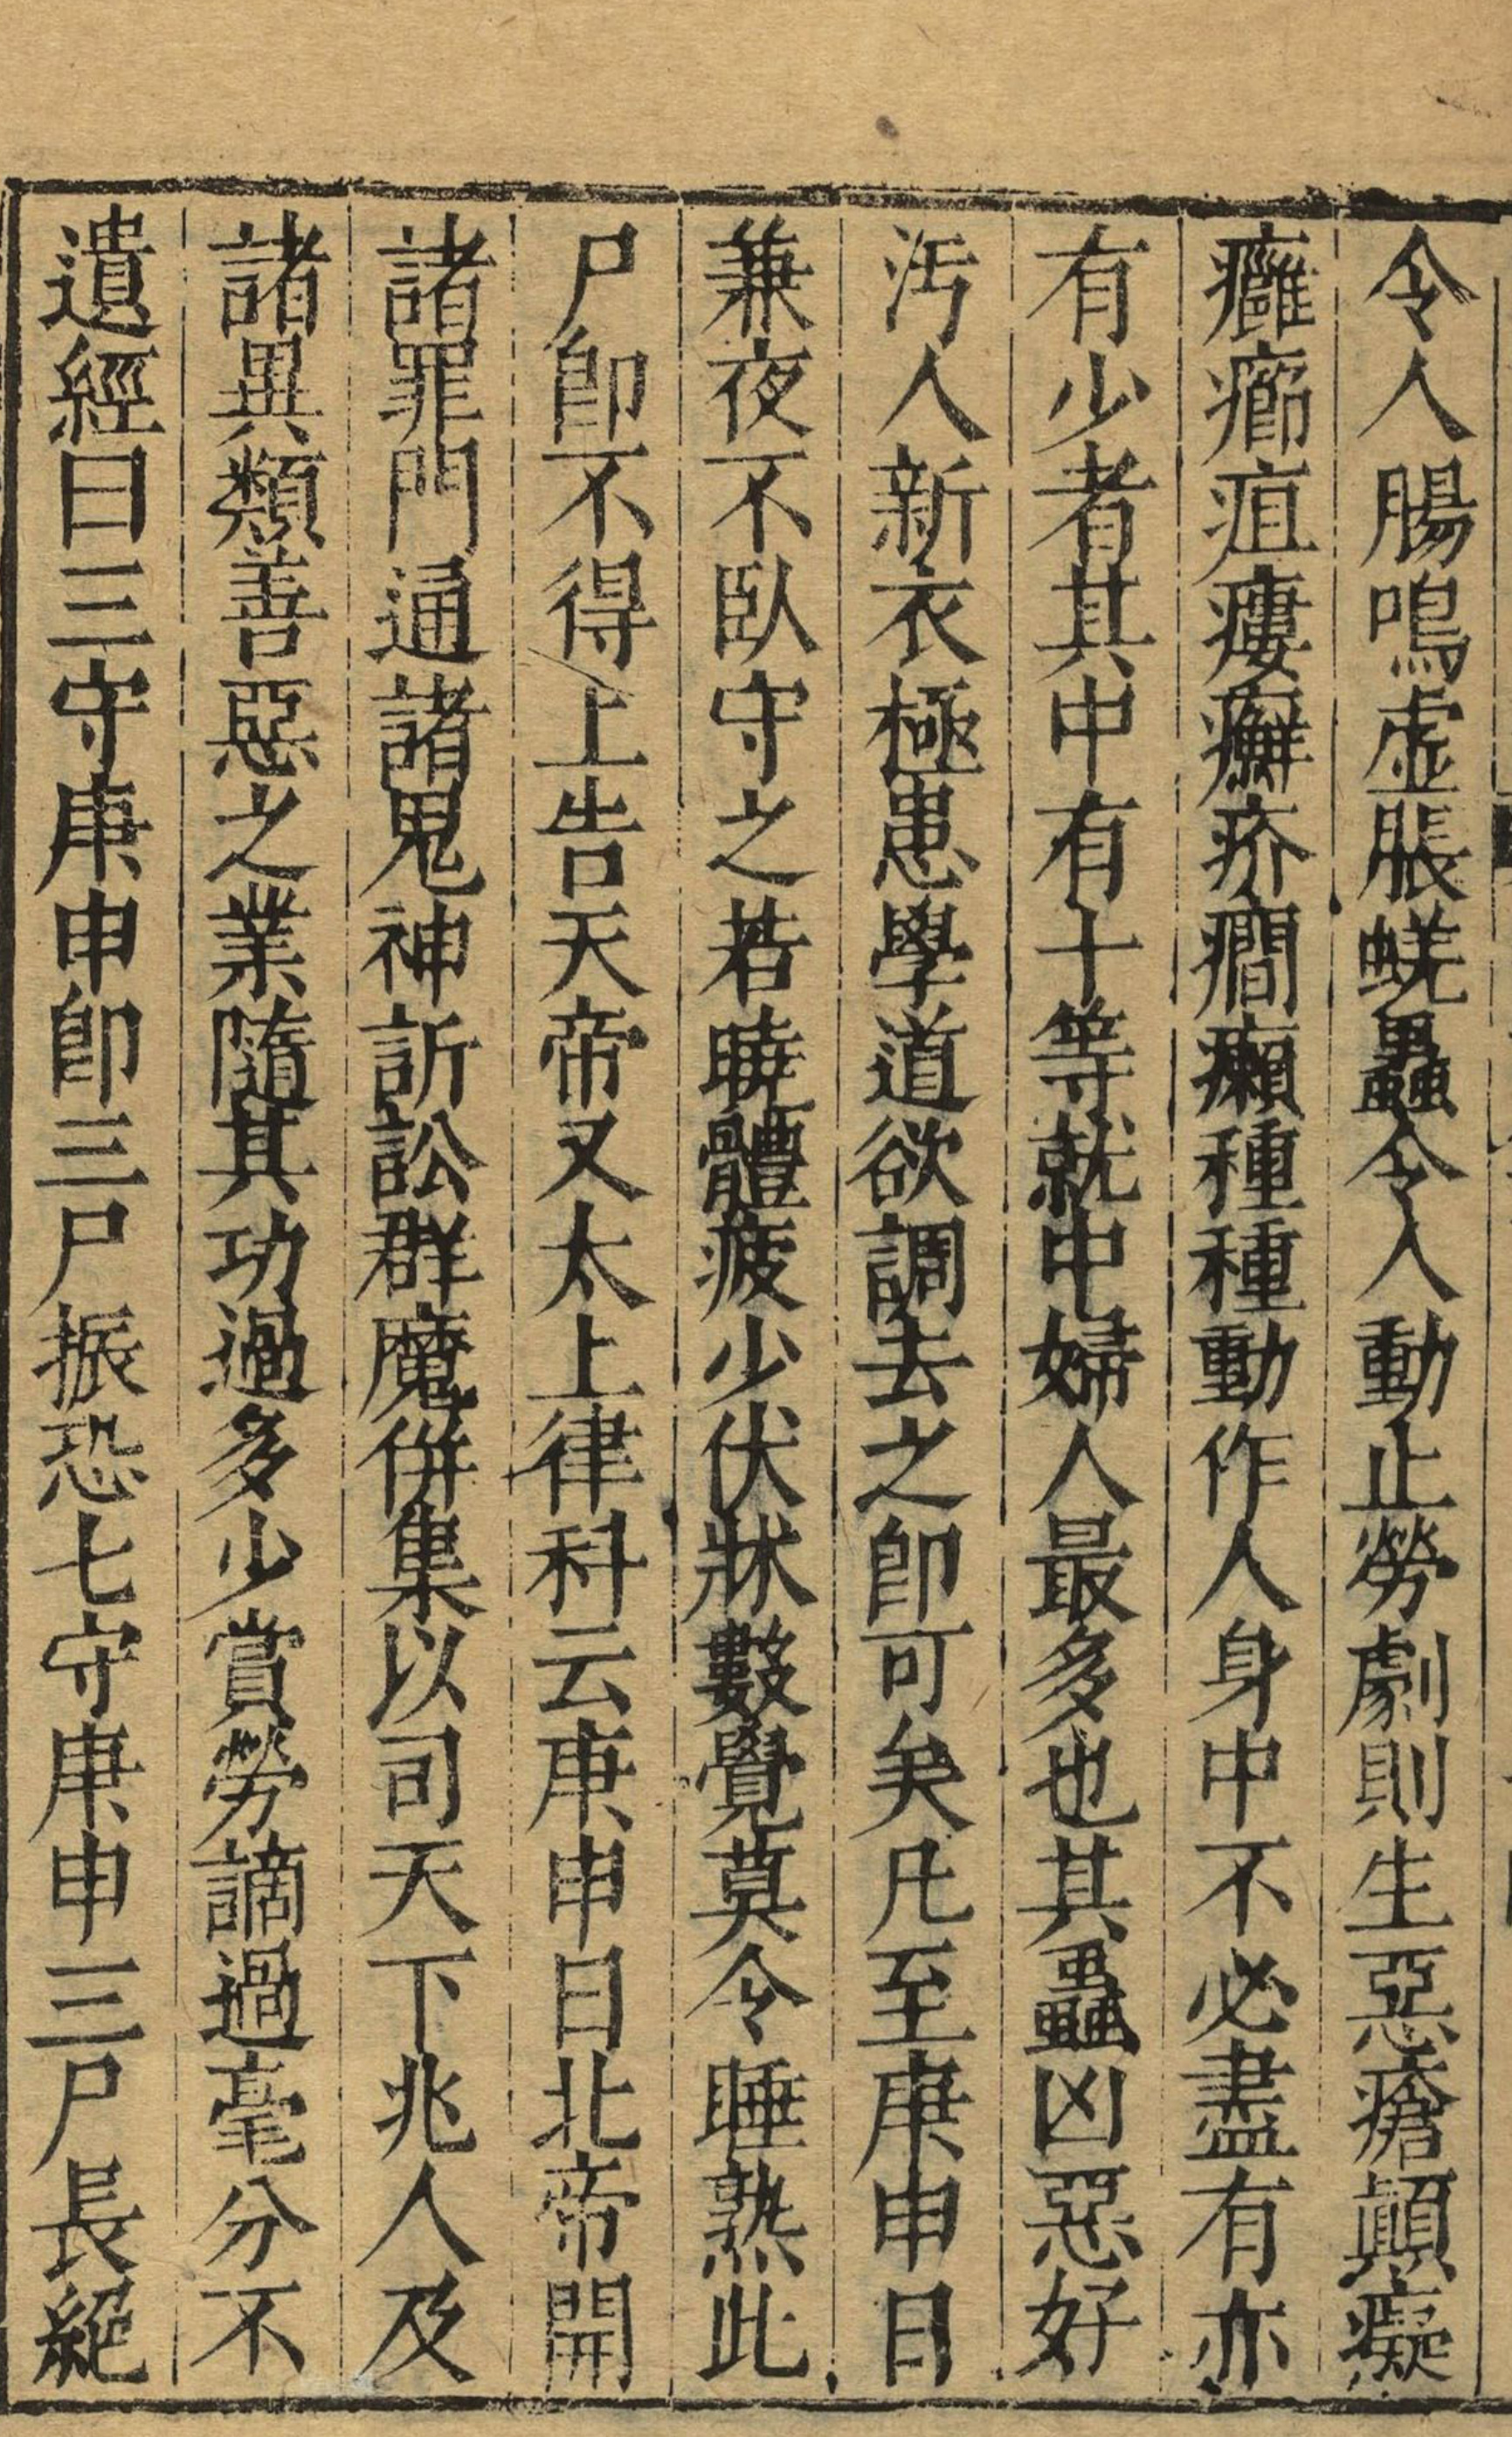 令人腸鳴虛脹蜣蟲令人動止勞劇則生惡瘡顛癡
癰癤疽瘻癬疥癎癩種種動作人身中不必盡有亦
有少者其中有十等就中婦人最多也其蟲凶惡好
汚人新衣極患學道欲調去之卽可矣凡至庚申日
兼夜不臥守之若曉體疲少伏牀數覺莫令睡熟此
尸卽不得上告天帝又太上律科云庚申日北帝開
諸罪門通諸鬼神訴訟群魔併集以司天下兆人及
諸異類善惡之業隨其功過多少賞勞謫過毫分不
遺經曰三守庚申卽三尸振恐七守庚申三尸長絕